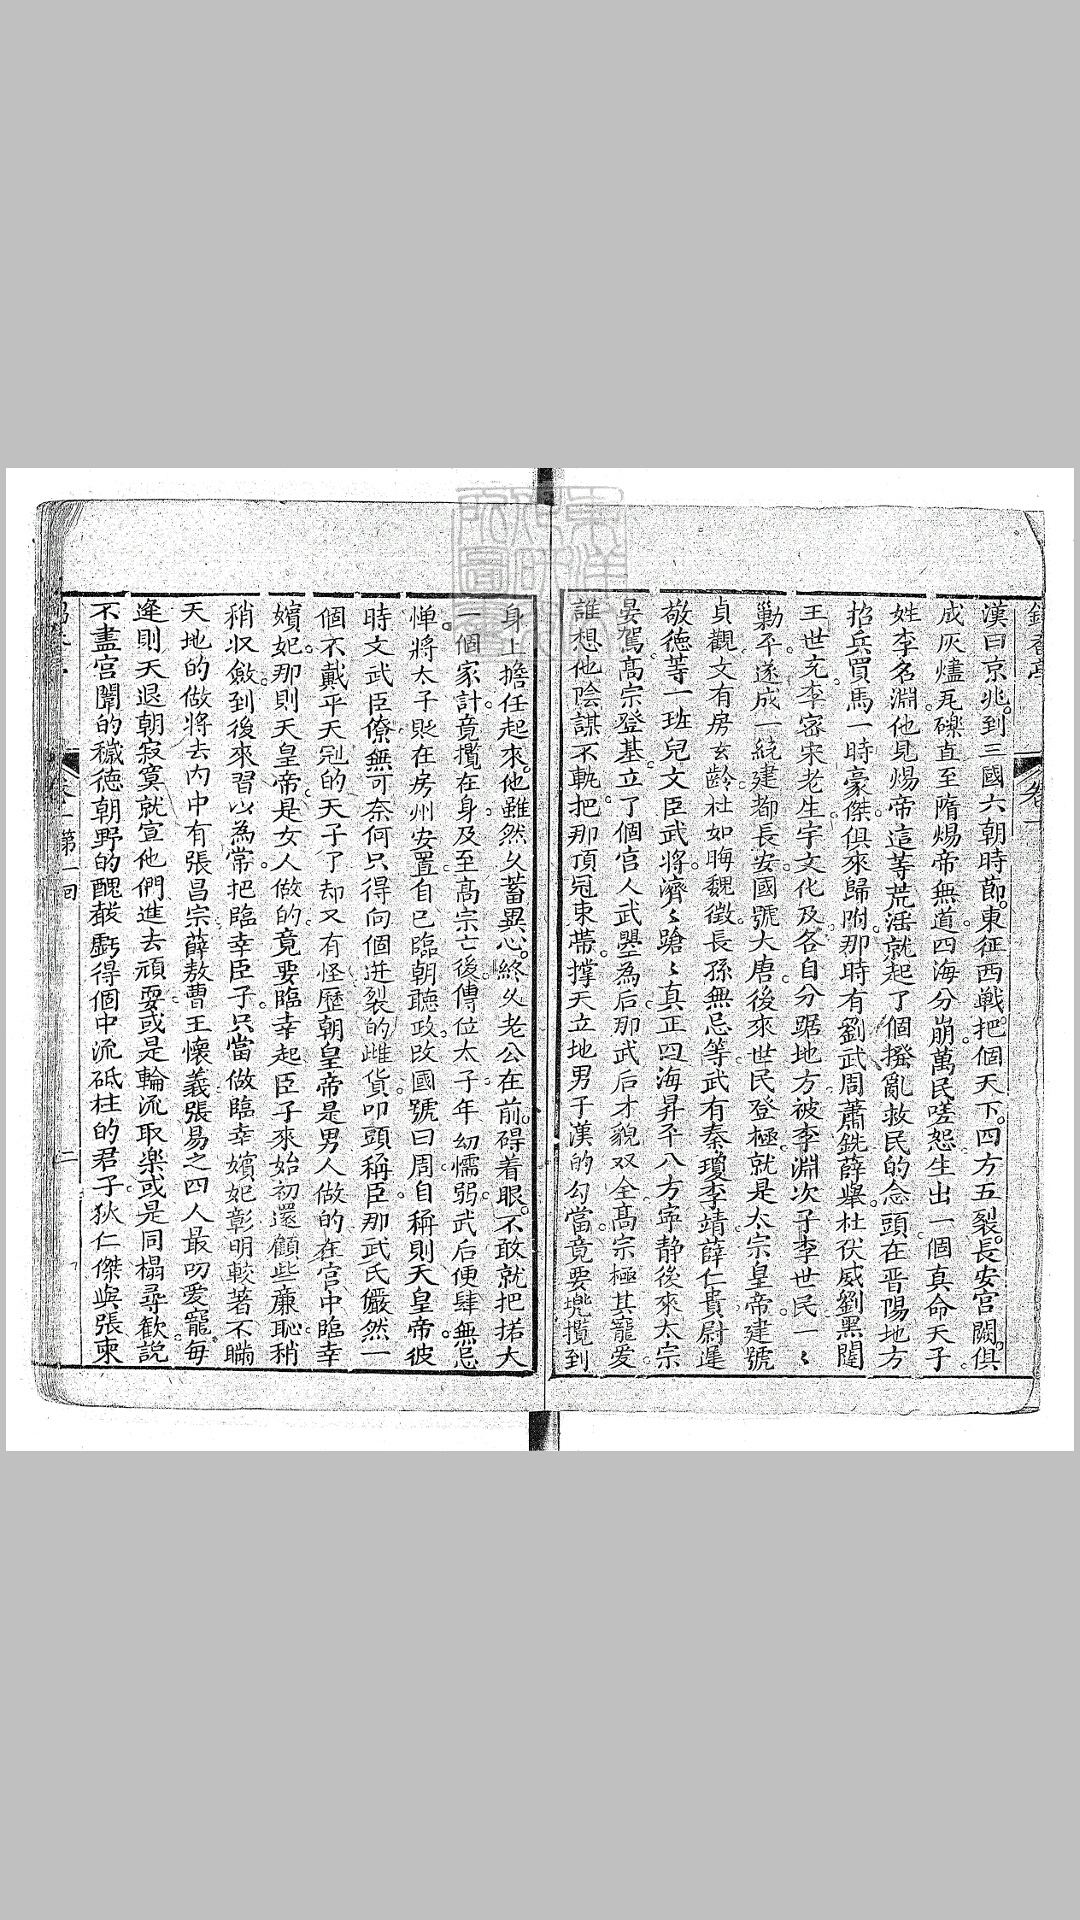 漢曰京兆。到三國六朝時節。東征西戰。把個天下。四方五裂。長安宮闕。俱
成灰燼瓦礫直至隋煬帝無道。四海分崩。萬民嗟怨。生出一個真命天子
姓李名淵。他見煬帝這等荒淫。就起了個撥亂救民的念頭。在晋陽地方
招兵買馬一時豪傑。俱來歸附。那時有劉武周蕭銑薛舉。杜伏威劉黑闥
王世充。李密宋老生宇文化及。各自分踞地方。被李淵次子李世民一〻
勦平。遂成一統。建都長安。國號大唐。後來世民登極。就是太宗皇帝。建號
貞觀。文有房玄齡。杜如晦魏徵。長孫無忌等。武有秦瓊李靖薛仁貴尉遲
敬德等一班兒文臣武將。濟〻蹌〻真正四海昇平八方寧静後來太宗
晏駕。高宗登基。立了個宮人武曌為后。那武后才貌双全。高宗極其寵爱。
誰想他陰謀不軌。把那頂冠束帶。撑天立地男子漢的勾當。竟要兠攬到
身上擔任起來。他雖然久蓄異心。終久老公在前。碍着眼。不敢就把拈大
一個家計。竟攬在身。及至高宗亡後。傳位太子。年幼懦弱。武后便肆無忌
憚。將太子貶在房州安置。自己臨朝聽政。改國號曰周。自稱則天皇帝。彼
時文武臣僚。無可奈何只得向個迸裂的雌貨。叩頭稱臣。那武氏儼然一
個不戴平天冠的天子了。却又有怪歷朝皇帝是男人做的。在宮中臨幸
嬪妃。那則天皇帝。是女人做的。竟要臨幸起臣子來。始初還顧些廉恥。稍
稍収斂。到後來習以為常。把臨幸臣子。只當做臨幸嬪妃彰明較著不瞞
天地的做將去內中有張昌宗薛敖曹王懷義張易之四人最叨愛寵。每
逢則天退朝寂寞就宣他們進去頑耍。或是輪流取樂。或是同榻尋歡。説
不盡宮闈的穢德朝野的醜聲。虧得個中流砥柱的君子。狄仁傑與張柬
卷一
第一回
二